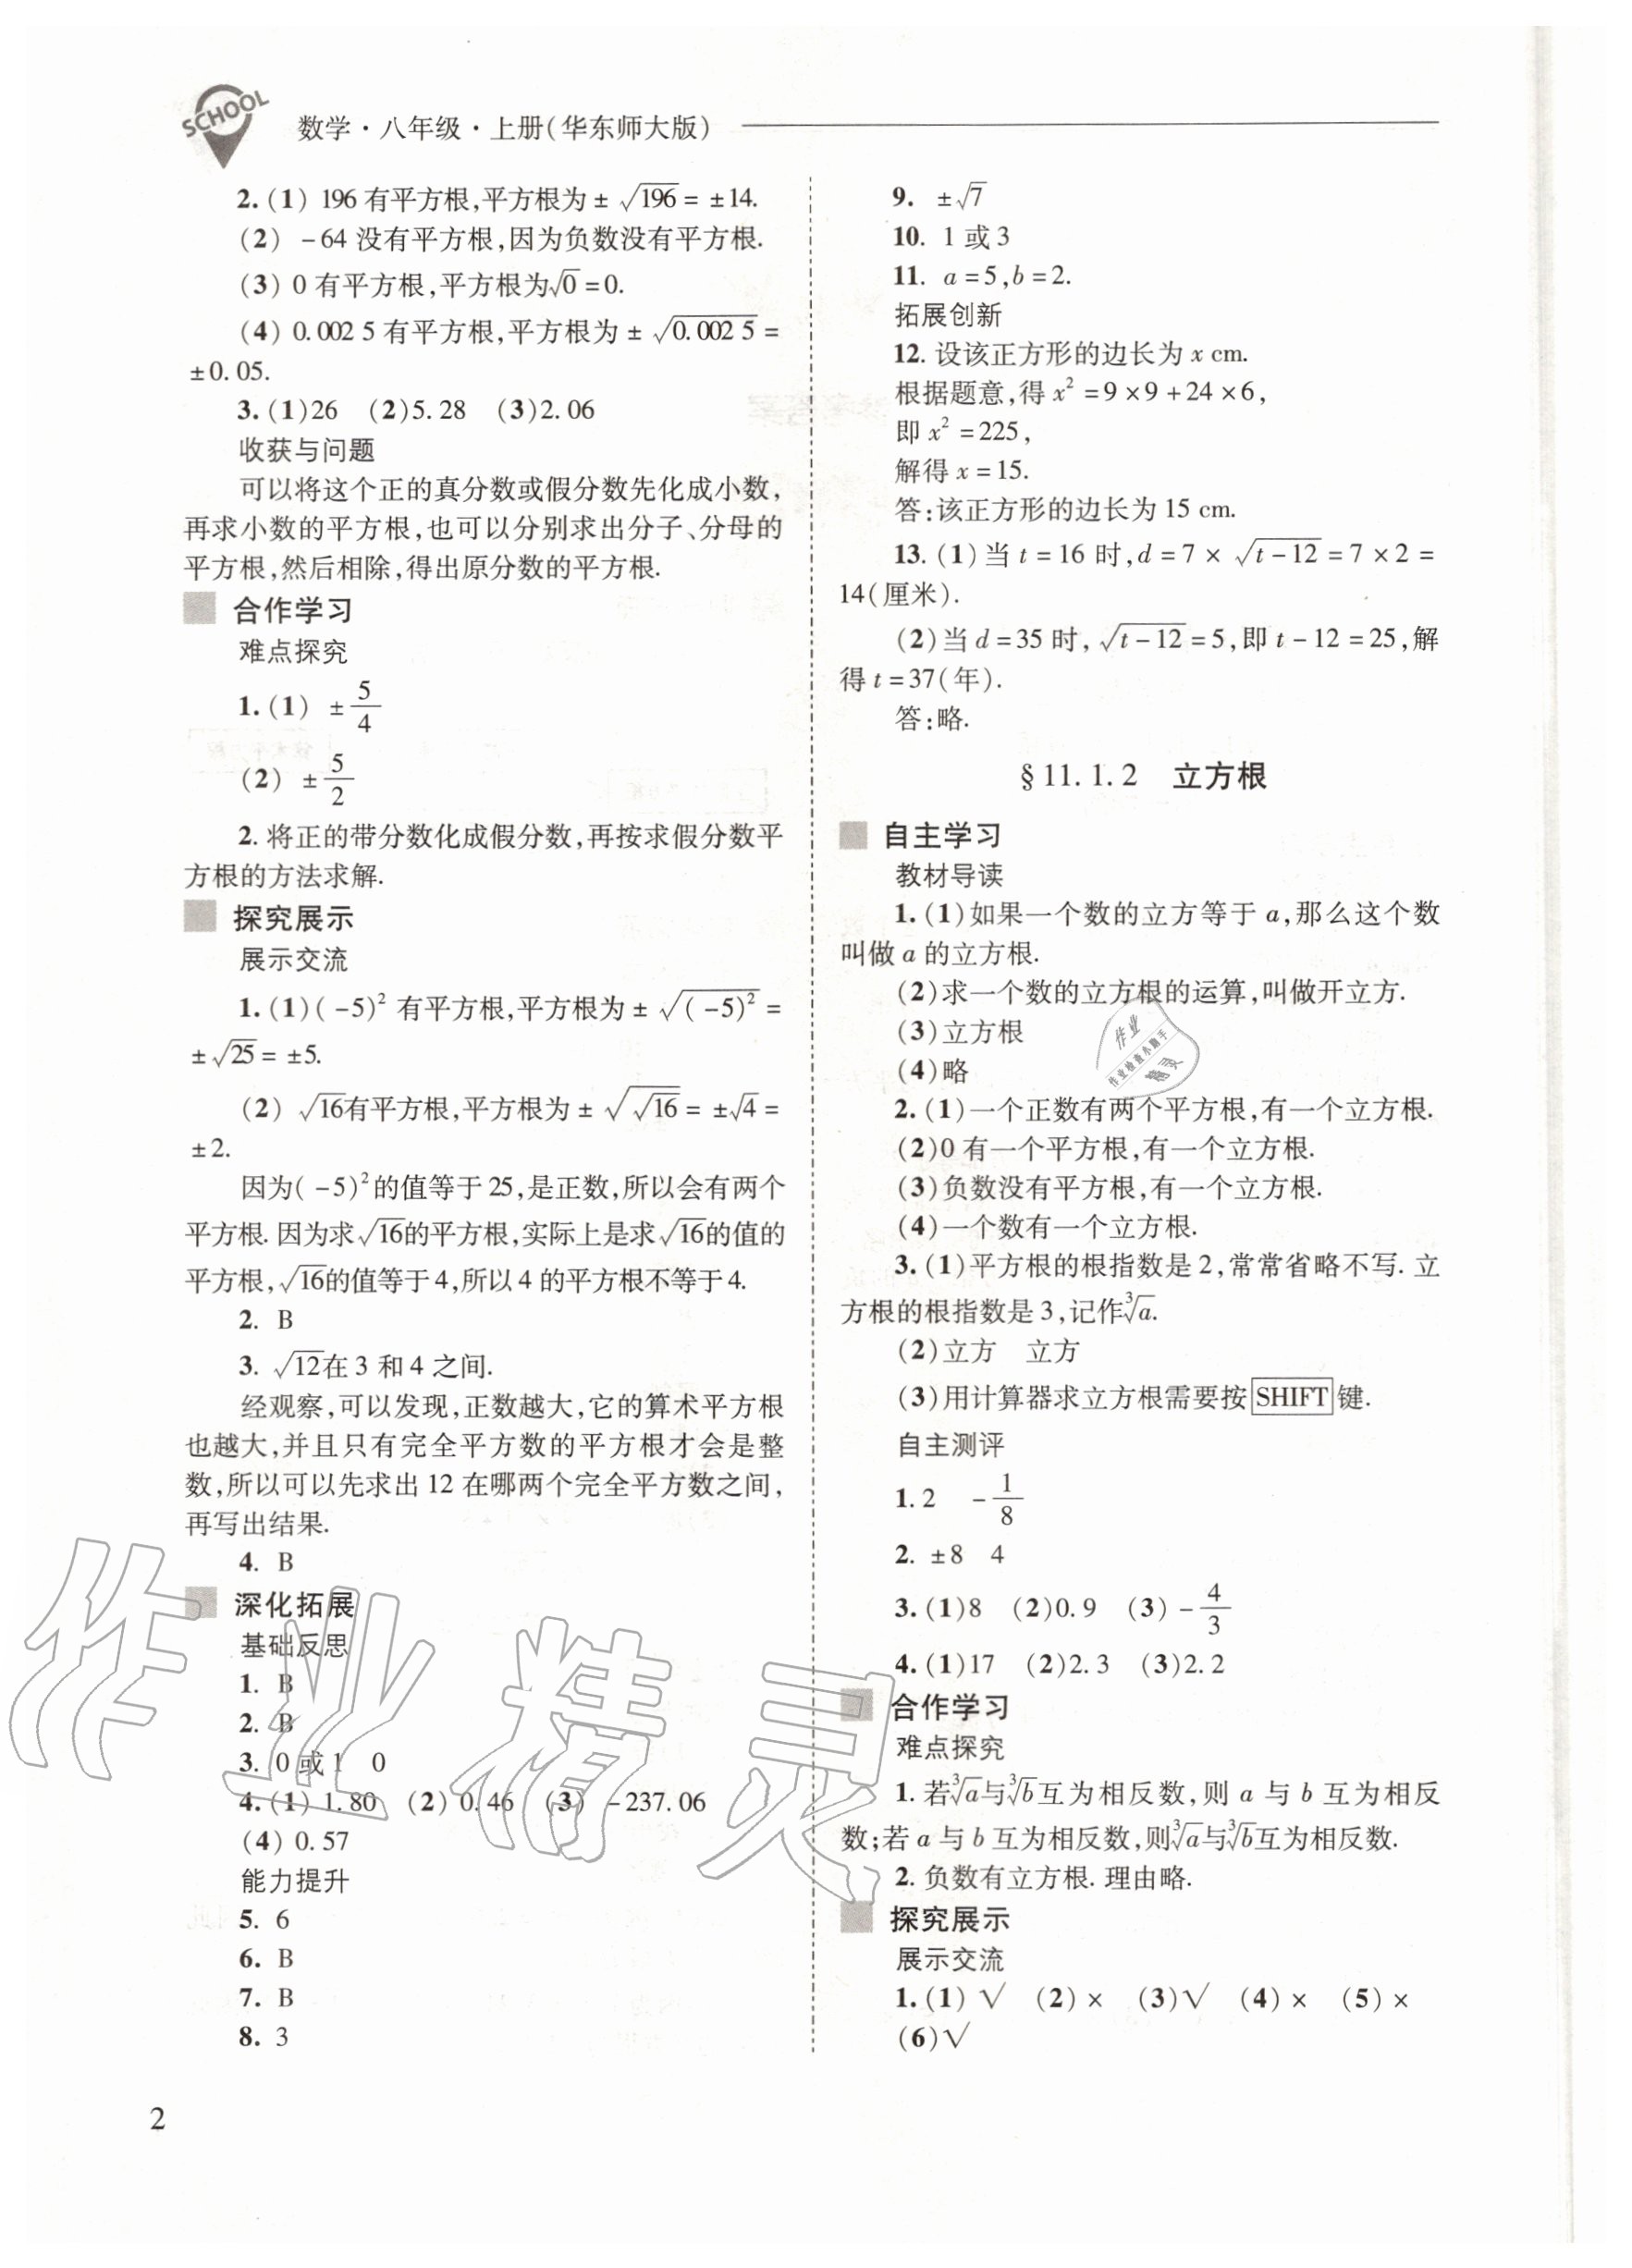 SCHOOL
数学·八年级·上册(华东师大版)
2. (1) 196 有平方根,平方根为 ± √196 = ±14.
(2) －64 没有平方根,因为负数没有平方根.
(3) 0 有平方根,平方根为√0 = 0.
(4) 0.002 5 有平方根,平方根为 ± √0.002 5 =
±0.05.
3. (1)26 (2)5.28 (3)2.06
收获与问题
可以将这个正的真分数或假分数先化成小数,
再求小数的平方根,也可以分别求出分子、分母的
平方根,然后相除,得出原分数的平方根.
合作学习
难点探究
1. (1) ± 5/4
(2) ± 5/2
2. 将正的带分数化成假分数,再按求假分数平
方根的方法求解.
探究展示
展示交流
1. (1)(－5)² 有平方根,平方根为 ± √(－5)² =
± √25 = ±5.
(2) √16有平方根,平方根为 ± √√16 = ±√4 =
±2.
因为(－5)²的值等于 25,是正数,所以会有两个
平方根. 因为求√16的平方根,实际上是求√16的值的
平方根,√16的值等于 4,所以 4 的平方根不等于 4.
2. B
3. √12在 3 和 4 之间.
经观察,可以发现,正数越大,它的算术平方根
也越大,并且只有完全平方数的平方根才会是整
数,所以可以先求出 12 在哪两个完全平方数之间,
再写出结果.
4. B
深化拓展
基础反思
1. B
2. B
3. 0 或 1 0
4. (1) 1.80 (2) 0.46 (3) －237.06
(4) 0.57
能力提升
5. 6
6. B
7. B
8. 3
9. ±√7
10. 1 或 3
11. a = 5, b = 2.
拓展创新
12. 设该正方形的边长为 x cm.
根据题意,得 x² = 9 × 9 + 24 × 6,
即 x² = 225,
解得 x = 15.
答:该正方形的边长为 15 cm.
13. (1)当 t = 16 时, d = 7 × √t－12 = 7 × 2 =
14(厘米).
(2)当 d = 35 时, √t－12 = 5,即 t－12 = 25,解
得 t = 37(年).
答:略.
§ 11.1.2 立方根
自主学习
教材导读
1. (1)如果一个数的立方等于 a,那么这个数
叫做 a 的立方根.
(2)求一个数的立方根的运算,叫做开立方.
(3)立方根
(4)略
2. (1)一个正数有两个平方根,有一个立方根.
(2)0 有一个平方根,有一个立方根.
(3)负数没有平方根,有一个立方根.
(4)一个数有一个立方根.
3. (1)平方根的根指数是 2,常常省略不写. 立
方根的根指数是 3,记作∛a.
(2)立方 立方
(3)用计算器求立方根需要按 SHIFT 键.
自主测评
1. 2 － 1/8
2. ±8 4
3. (1)8 (2)0.9 (3) － 4/3
4. (1)17 (2)2.3 (3)2.2
合作学习
难点探究
1. 若∛a与∛b互为相反数,则 a 与 b 互为相反
数;若 a 与 b 互为相反数,则∛a与∛b互为相反数.
2. 负数有立方根. 理由略.
探究展示
展示交流
1. (1) √ (2) × (3) √ (4) × (5) ×
(6) √
2
作业精灵
作业
作业检查小助手
精灵